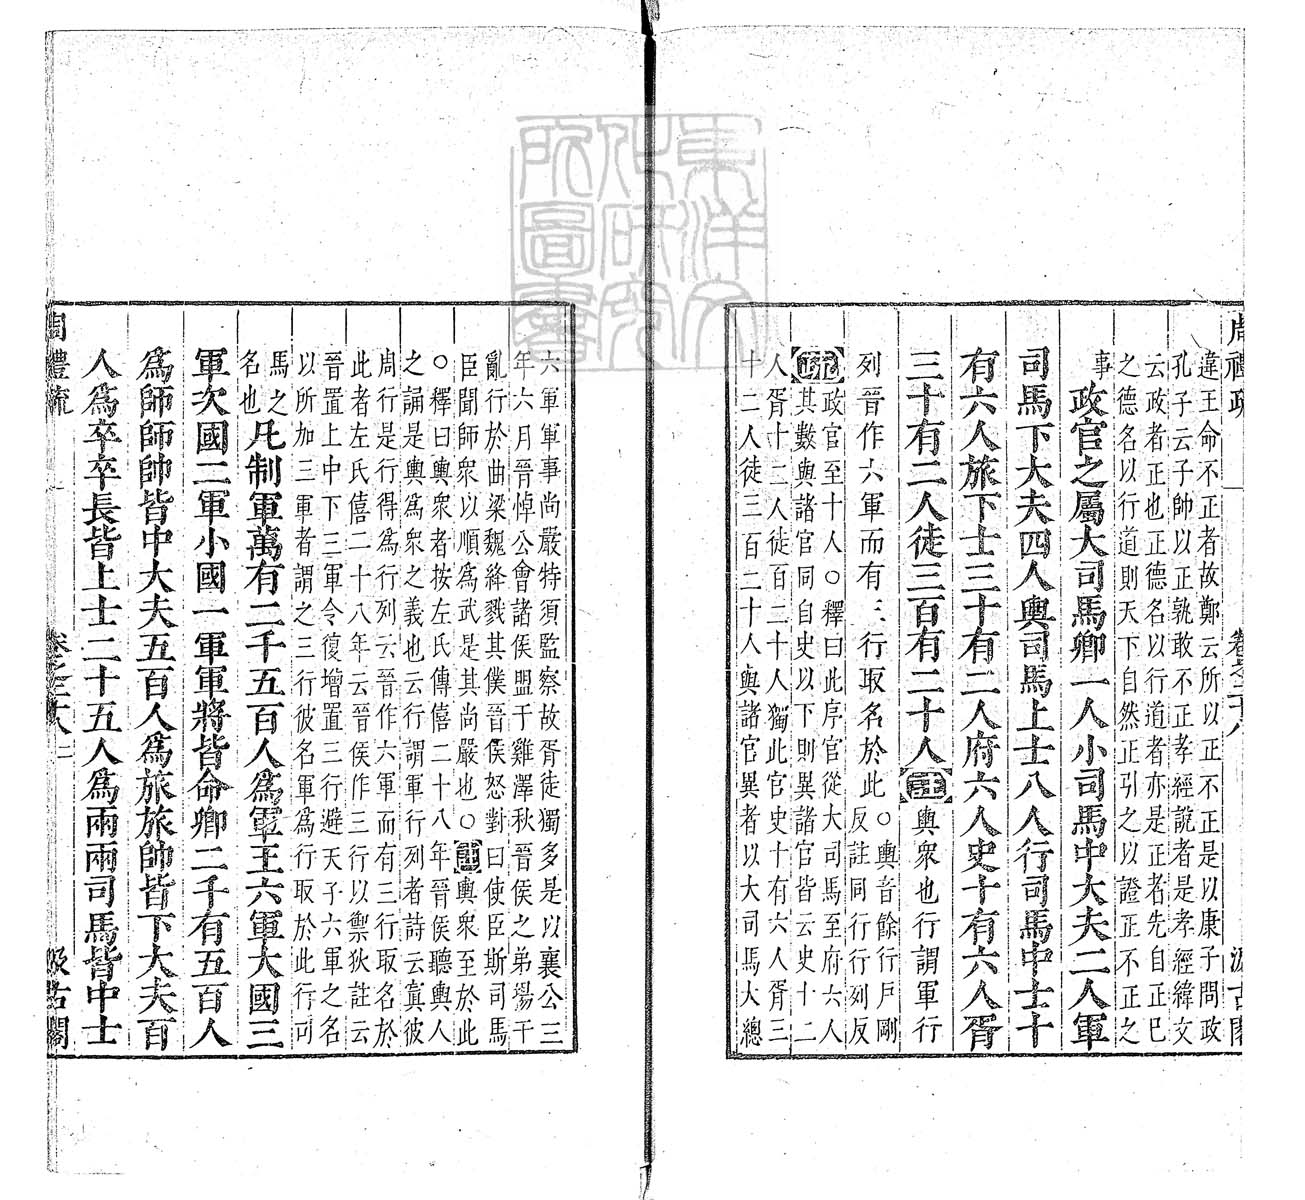 周禮疏 卷之二十八 汲古閣
違王命不正者故鄭云所以正不正是以康子問政
孔子云子帥以正孰敢不正孝經說者是孝經緯文
云政者正也正德名以行道者亦是正者先自正己
之德名以行道則天下自然正引之以證正不正之
事 政官之屬大司馬卿一人小司馬中大夫二人軍
司馬下大夫四人輿司馬上士八人行司馬中士十
有六人旅下士三十有二人府六人史十有六人胥
三十有二人徒三百有二十人註輿衆也行謂軍行
列晉作六軍而有三行取名於此 ○輿音餘行戶剛
反註同行行列反
疏政官至十人○釋曰此序官從大司馬至府六人
其數與諸官同自史以下則異諸官皆云史十二
人胥十二人徒百二十人獨此官史十有六人胥三
十二人徒三百二十人與諸官異者以大司馬大總
六軍軍事尚嚴特須監察故胥徒獨多是以襄公三
年六月晉悼公會諸侯盟于雞澤秋晉侯之弟揚干
亂行於曲梁魏絳戮其僕晉侯怒對曰使臣斯司馬
臣聞師衆以順爲武是其尚嚴也○註輿衆至於此
○釋曰輿衆者按左氏傳僖二十八年晉侯聽輿人
之誦是輿爲衆之義也云行謂軍行列者詩云寘彼
周行是行得爲行列云晉作六軍而有三行取名於
此者左氏僖二十八年云晉侯作三行以禦狄註云
晉置上中下三軍令復增置三行避天子六軍之名
以所加三軍者謂之三行彼名軍爲行取於此行司
馬之
名也 凡制軍萬有二千五百人爲軍王六軍大國三
軍次國二軍小國一軍軍將皆命卿二千有五百人
爲師師帥皆中大夫五百人爲旅旅帥皆下大夫百
人爲卒卒長皆上士二十五人爲兩兩司馬皆中士
周禮疏 卷之二十八 二 汲古閣
東洋文化研究所圖書